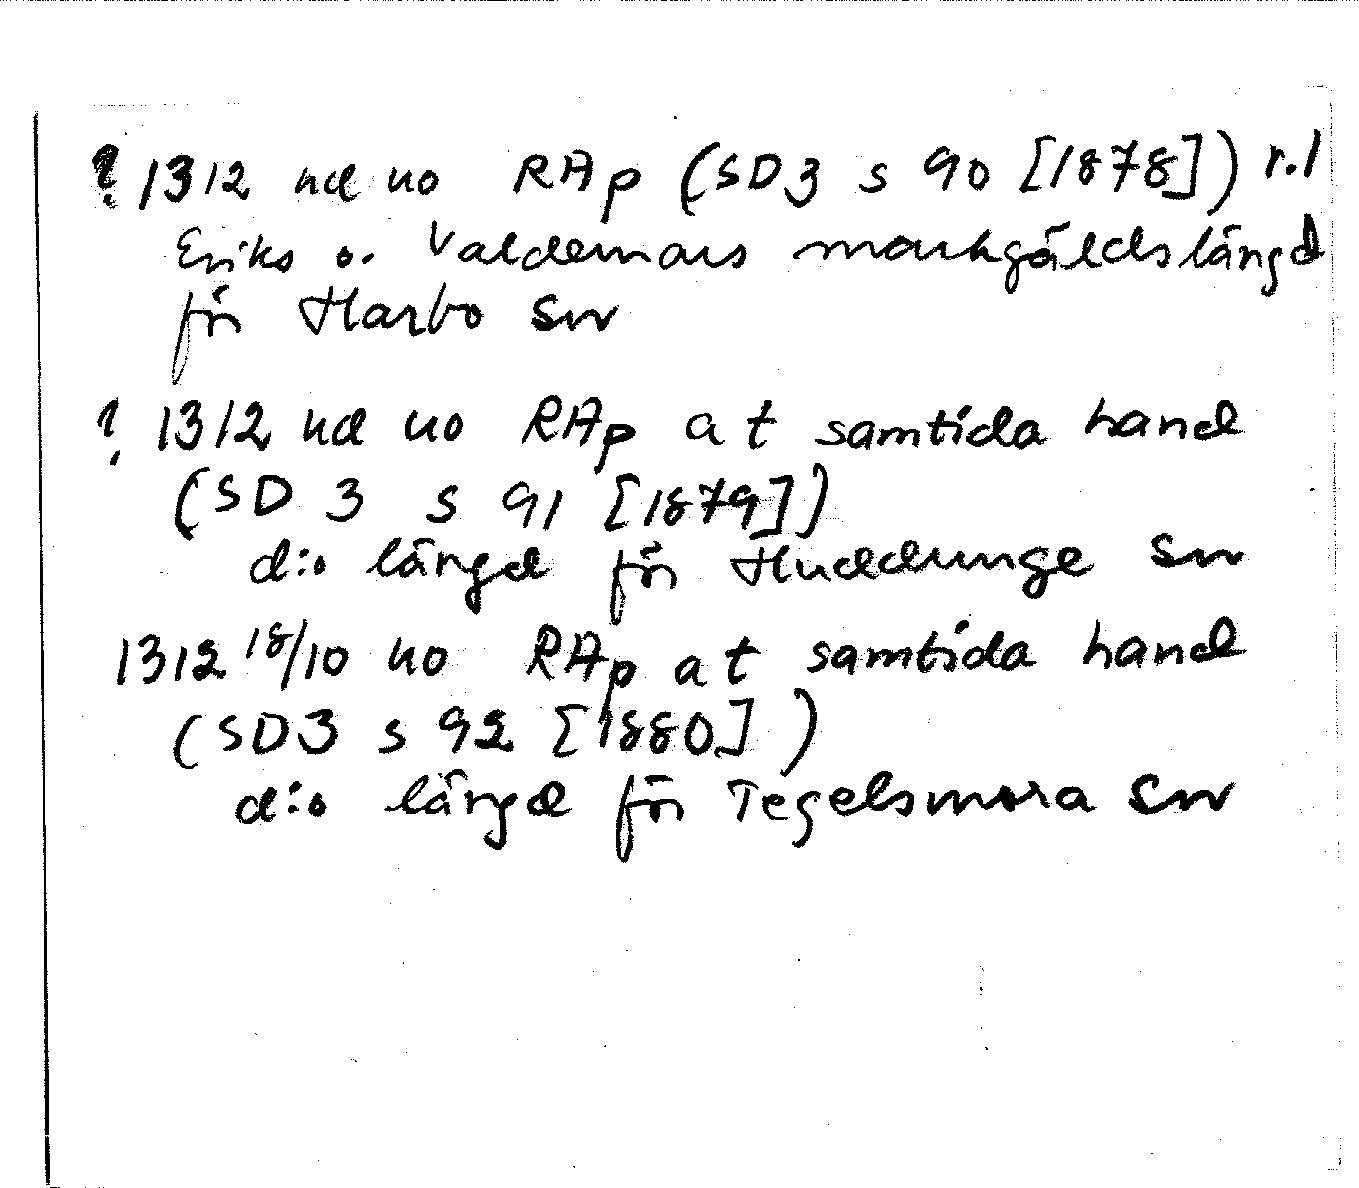 ? 1312 nd uo RAp (SD3 s 90 [1878]) r.1
Eriks o. Valdemars markgäldslängd
för Harbo sn
? 1312 nd uo RAp at samtida hand
(SD 3 s 91 [1879])
d:o längd för Huddunge sn
1312 18/10 uo RAp at samtida hand
(SD3 s 92 [1880])
d:o längd för Tegelsmora sn